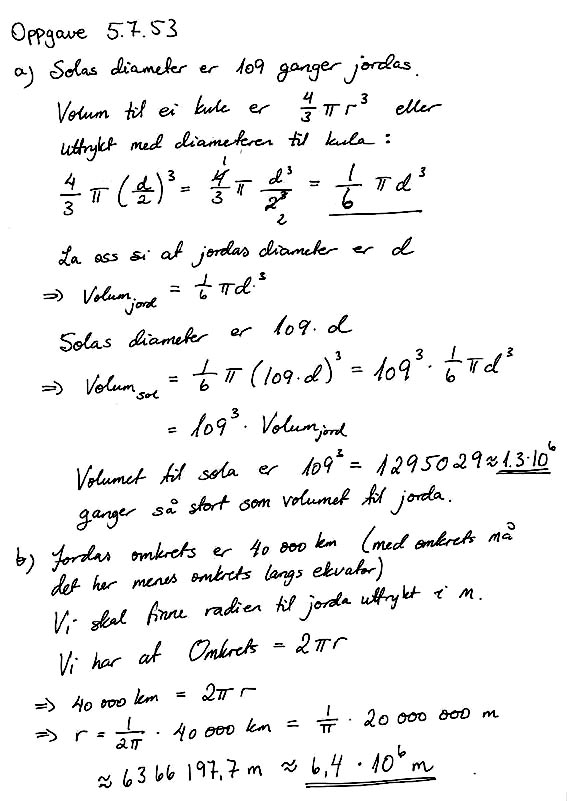 Oppgave 5.7.53
a) Solas diameter er 109 ganger jordas.
Volum til ei kule er 4/3 π r³ eller
uttrykt med diameteren til kula :
4/3 π (d/2)³ = 4̸/3 ¹ π d³/2̸³̸ ₂ = 1/6 π d³
La oss si at jordas diameter er d
⇒ Volum_jord = 1/6 π d³
Solas diameter er 109 · d
⇒ Volum_sol = 1/6 π (109·d)³ = 109³ · 1/6 π d³
= 109³ · Volum_jord
Volumet til sola er 109³ = 1295029 ≈ 1.3·10⁶
ganger så stort som volumet til jorda.
b) Jordas omkrets er 40 000 km (med omkrets må
det her menes omkrets langs ekvator)
Vi skal finne radien til jorda uttrykt i m.
Vi har at Omkrets = 2πr
⇒ 40 000 km = 2π r
⇒ r = 1/2π · 40 000 km = 1/π · 20 000 000 m
≈ 6366 197,7 m ≈ 6,4 · 10⁶ m